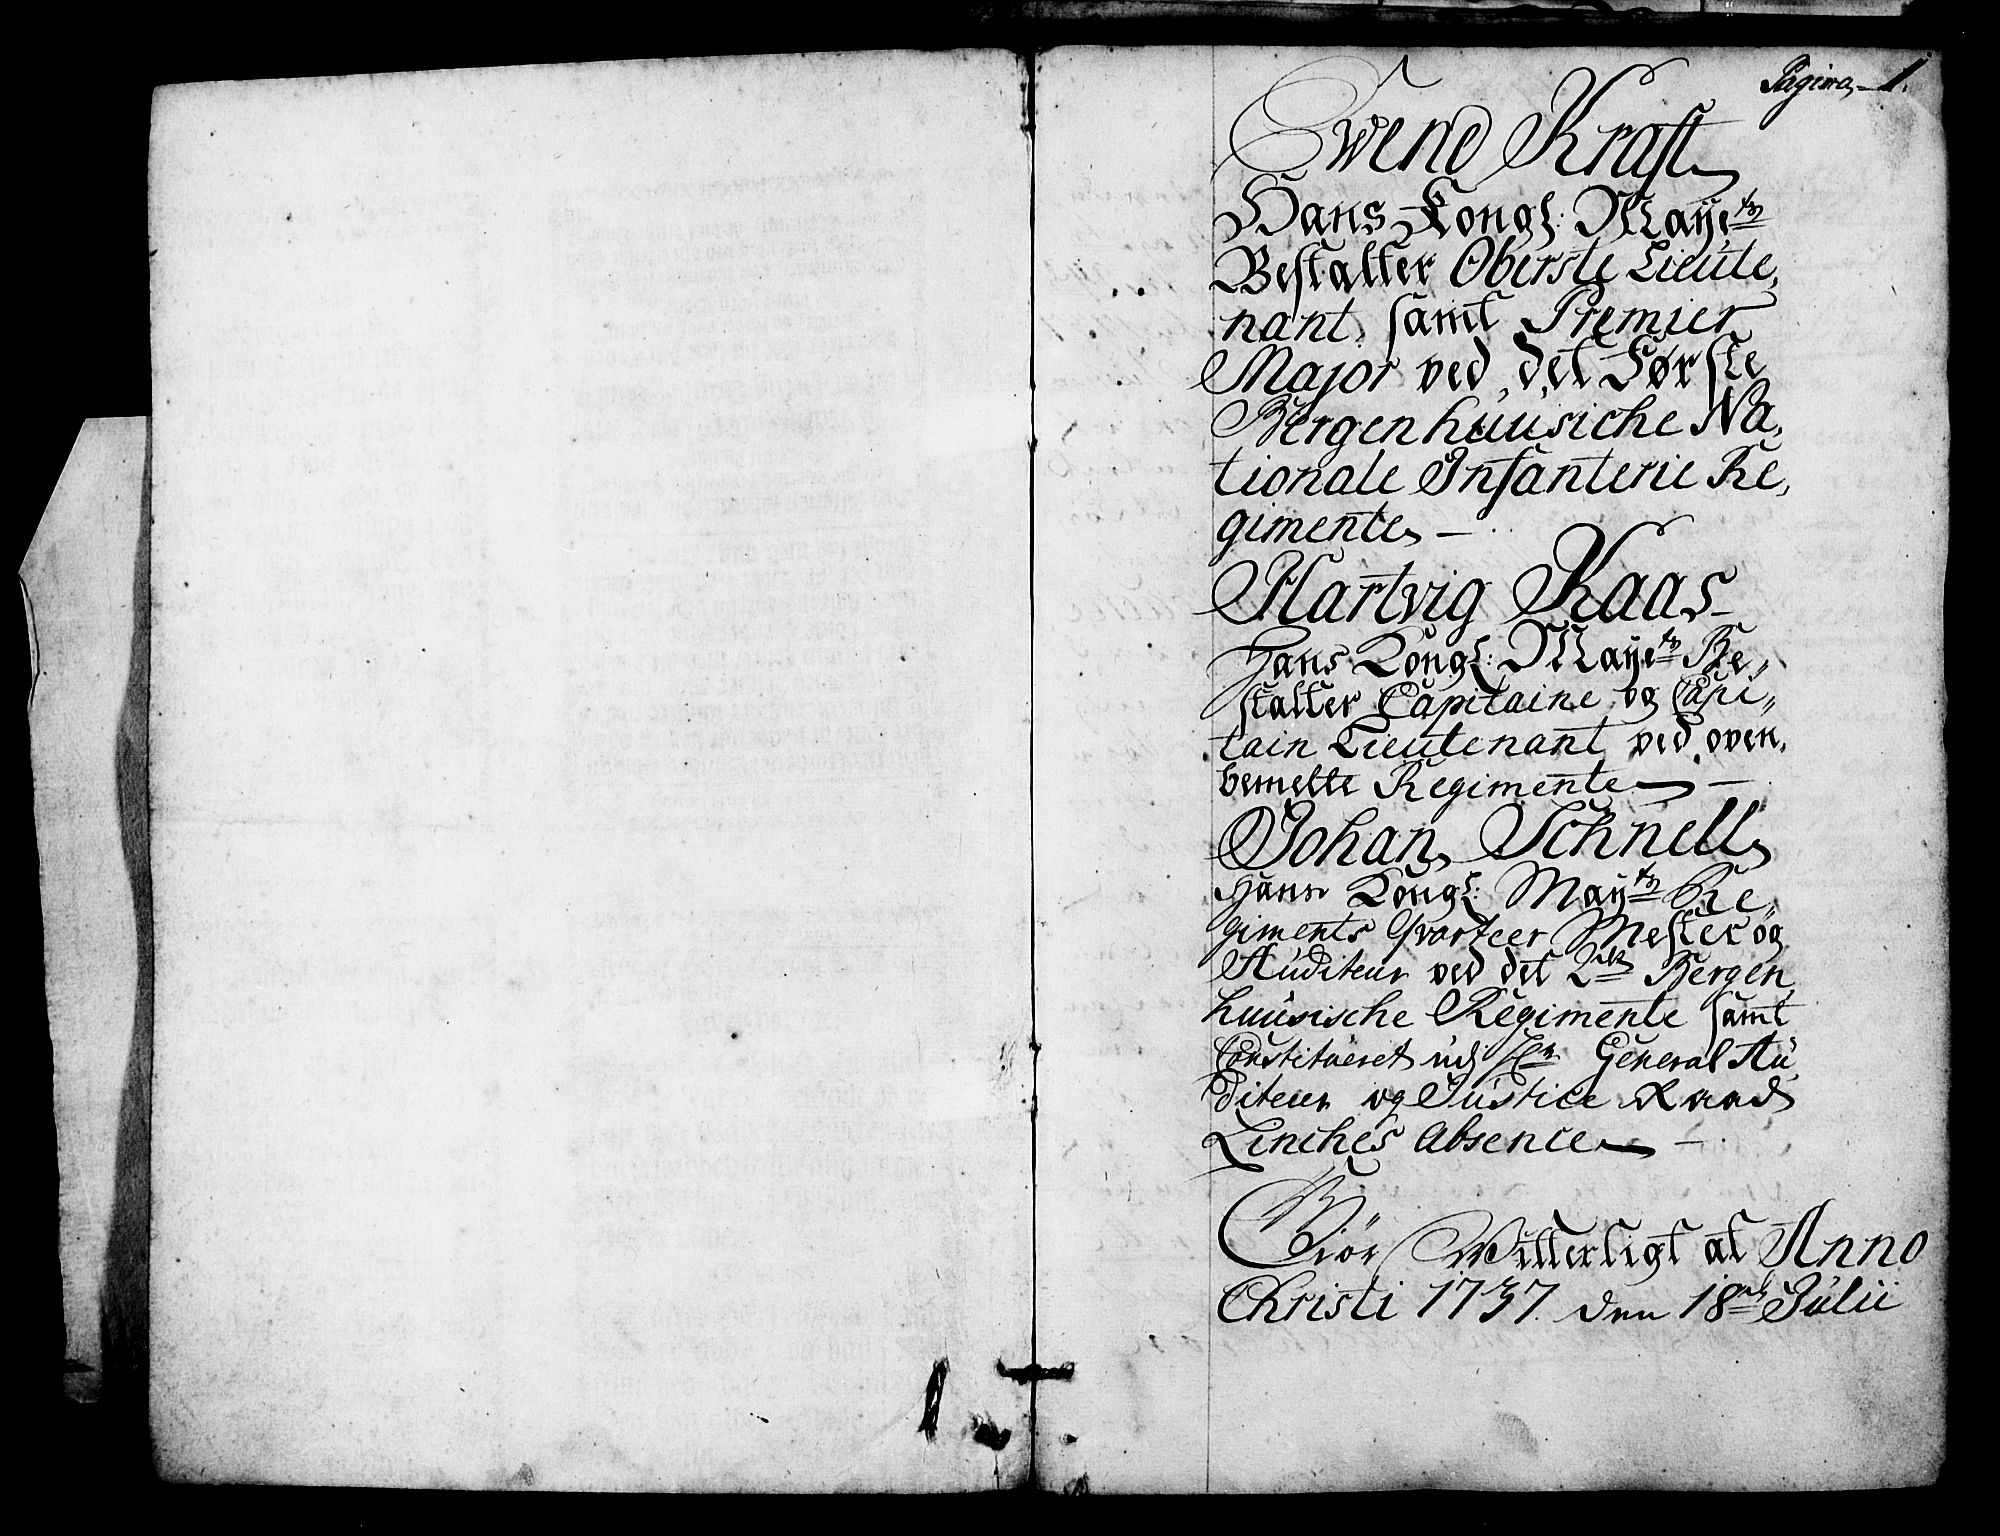 Pagina, 1.
Svend Kraft
Hans Kongl: Mayetz
Bestalter Oberste Lieute,
nant, samt Premier
Major ved det Første
Bergenhuusiche Na,
tionale Infanterie Re,
gimente —
Hartvig Kaas
Hans Kongl: Mayetz Be,,
stalter Capitaine og Capi,,
tain Lieutenant ved oven,
bemelte Regimente —
Johan Schnell
Hans Kongl: Maytz Re,,
giments Qvarteer Mester og
Auditeur ved det 2det Bergen,
huusische Regimente samt
Constitueret udj Hr. General Au,
diteur og Justice Raad
Linches Absence —
Giör Witterligt at Anno
Christi 1737. den 18de Julii